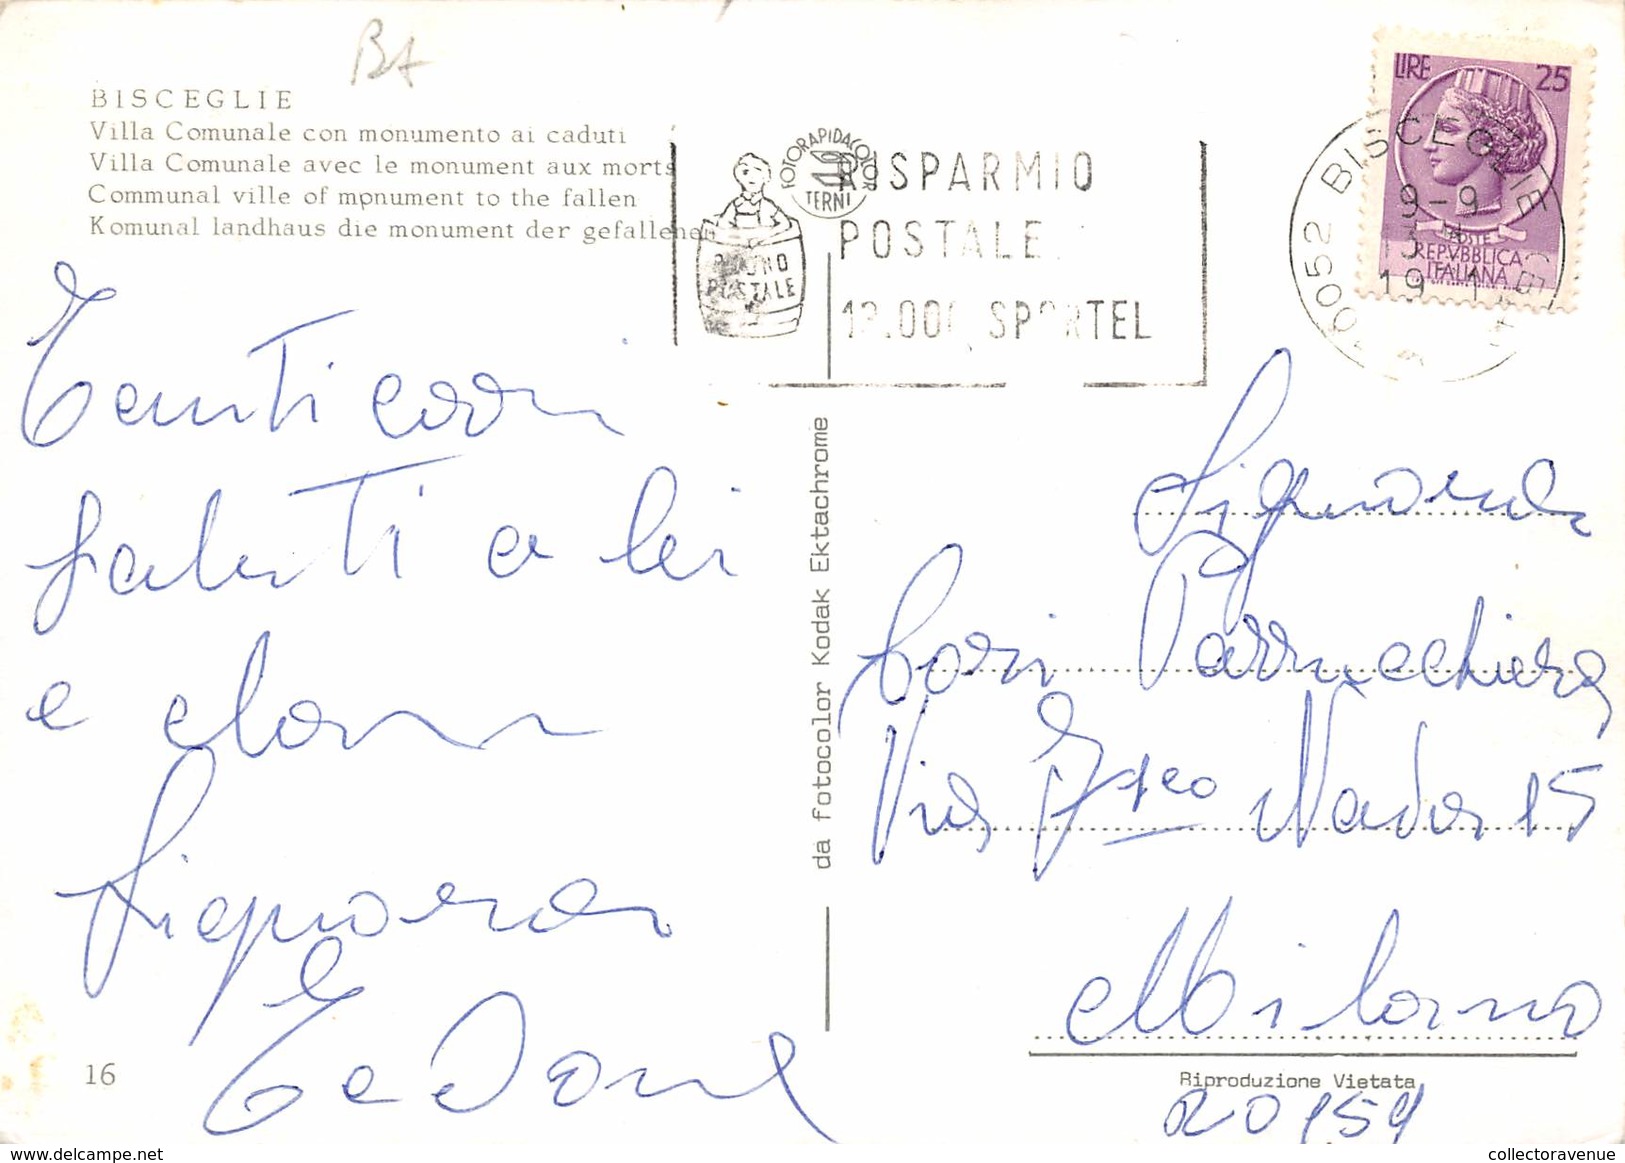 BA
BISCEGLIE
Villa Comunale con monumento ai caduti
Villa Comunale avec le monument aux morts
Communal ville of mpnument to the fallen
Komunal landhaus die monument der gefallenen
FOTORAPIDACOLOR
TERNI
BUONO
POSTALE
RISPARMIO
POSTALE
12.000 SPORTEL
LIRE 25
POSTE
REPVBBLICA
ITALIANA
BISCEGLIE
9-9
19
Tanti cari
saluti a lei
e
Signora
da fotocolor Kodak Ektachrome
Signora
Cori Parrucchiera
Via 15
Milano
16
Riproduzione Vietata
20154
delcampe.net
collectoravenue